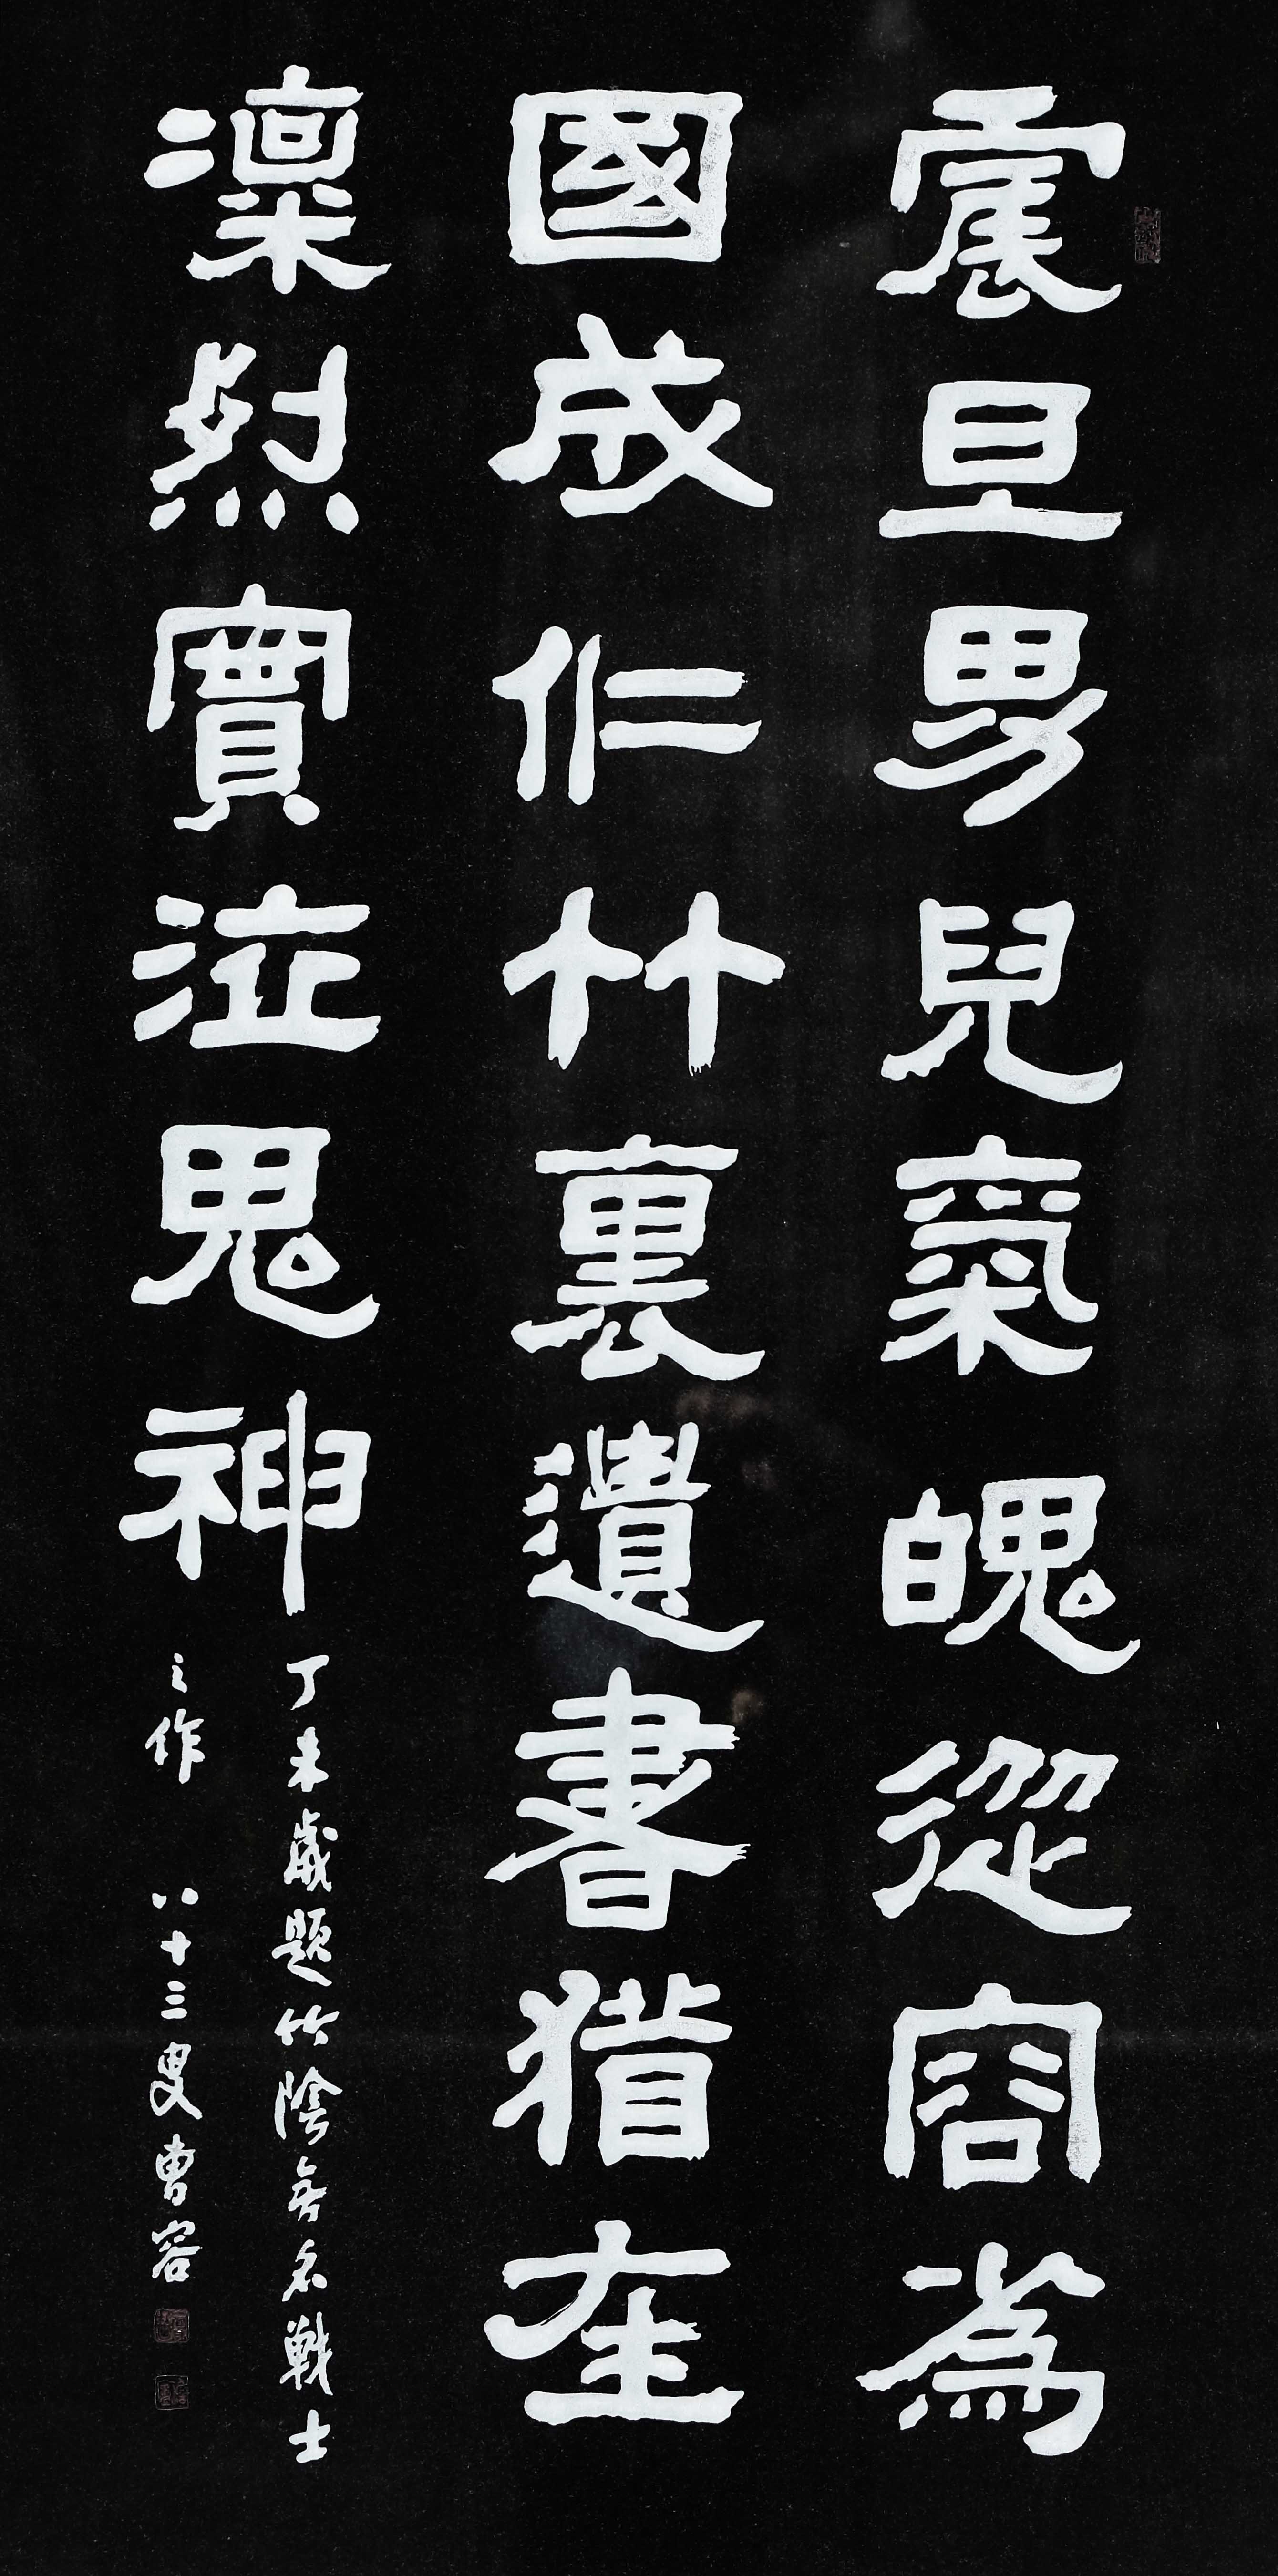 震旦男兒氣魄從容為
國成仁竹裏遺書猶在
凜烈實泣鬼神
丁未歲題竹陰無名戰士
之作 八十三叟曹容